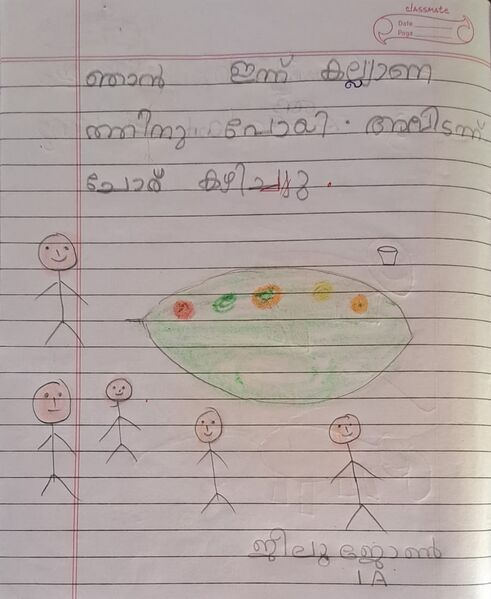 classmate
Date
Page
ഞാൻ ഇന്ന് കല്ല്യാണ
ത്തിനു പോയി. അവിടന്ന്
ചോറ് കഴിച്ചു.
ജീലു ജോൺ
1 A